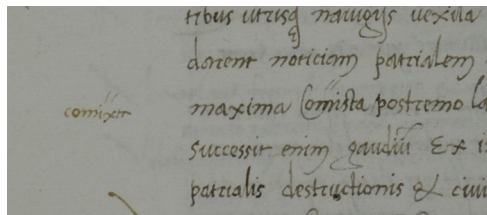 tibus utrisq nauigijs uexilla
darent noticiam patrialem
comixtr
maxima Comista postremo La
successit enim gaudiū Ex i
patrialis destructionis & ciui